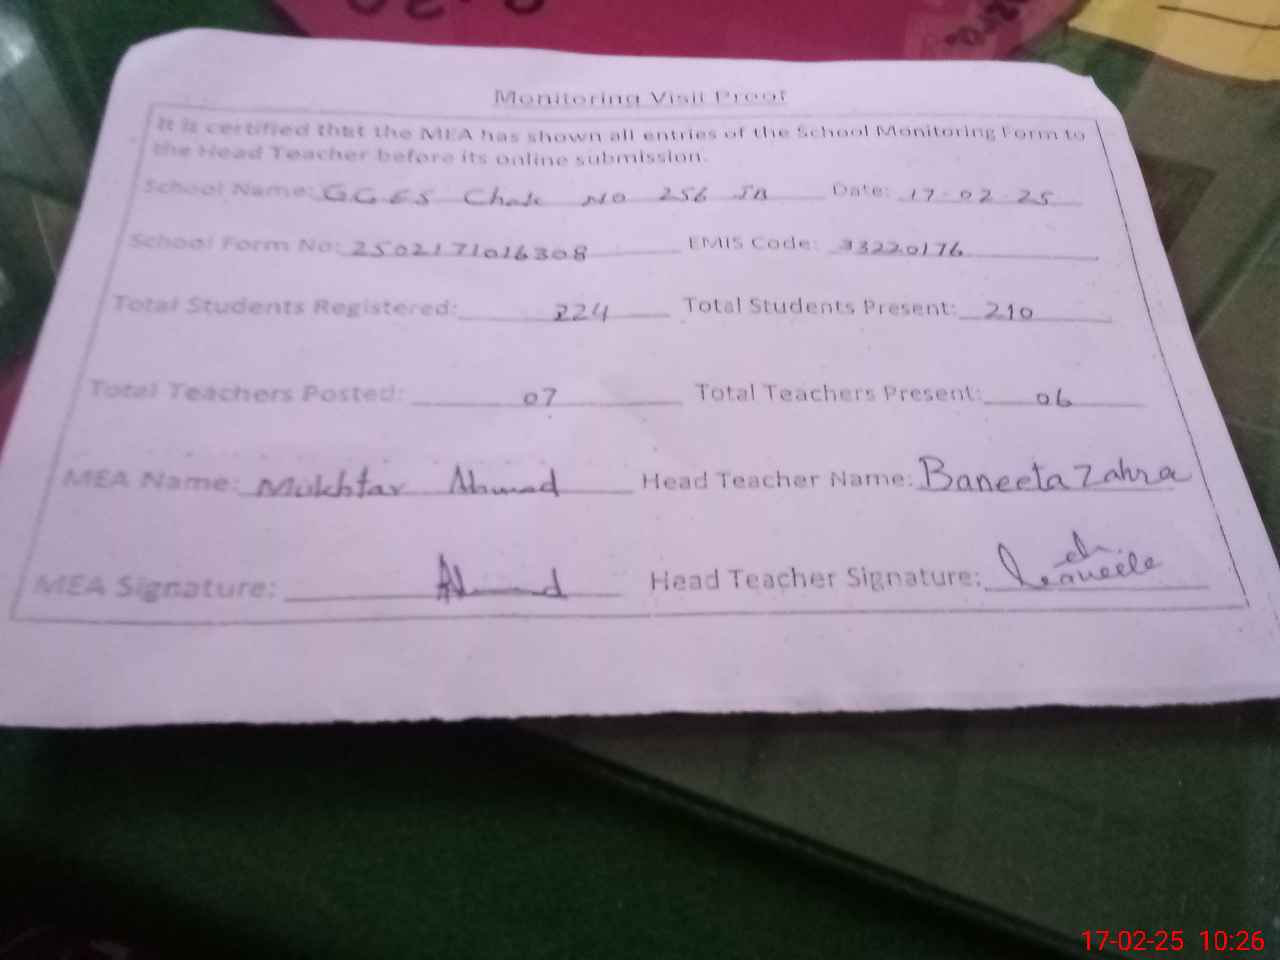 Monitoring Visit Proof
It is certified that the MEA has shown all entries of the School Monitoring Form to
the Head Teacher before its online submission.
School Name: GGES Chak NO 256 JB Date: 17-02-25
School Form No: 2502171016308 EMIS Code: 33220176
Total Students Registered: 224 Total Students Present: 210
Total Teachers Posted: 07 Total Teachers Present: 06
MEA Name: Mukhtar Ahmad Head Teacher Name: Baneeta Zahra
MEA Signature: Ahmad Head Teacher Signature:
17-02-25 10:26